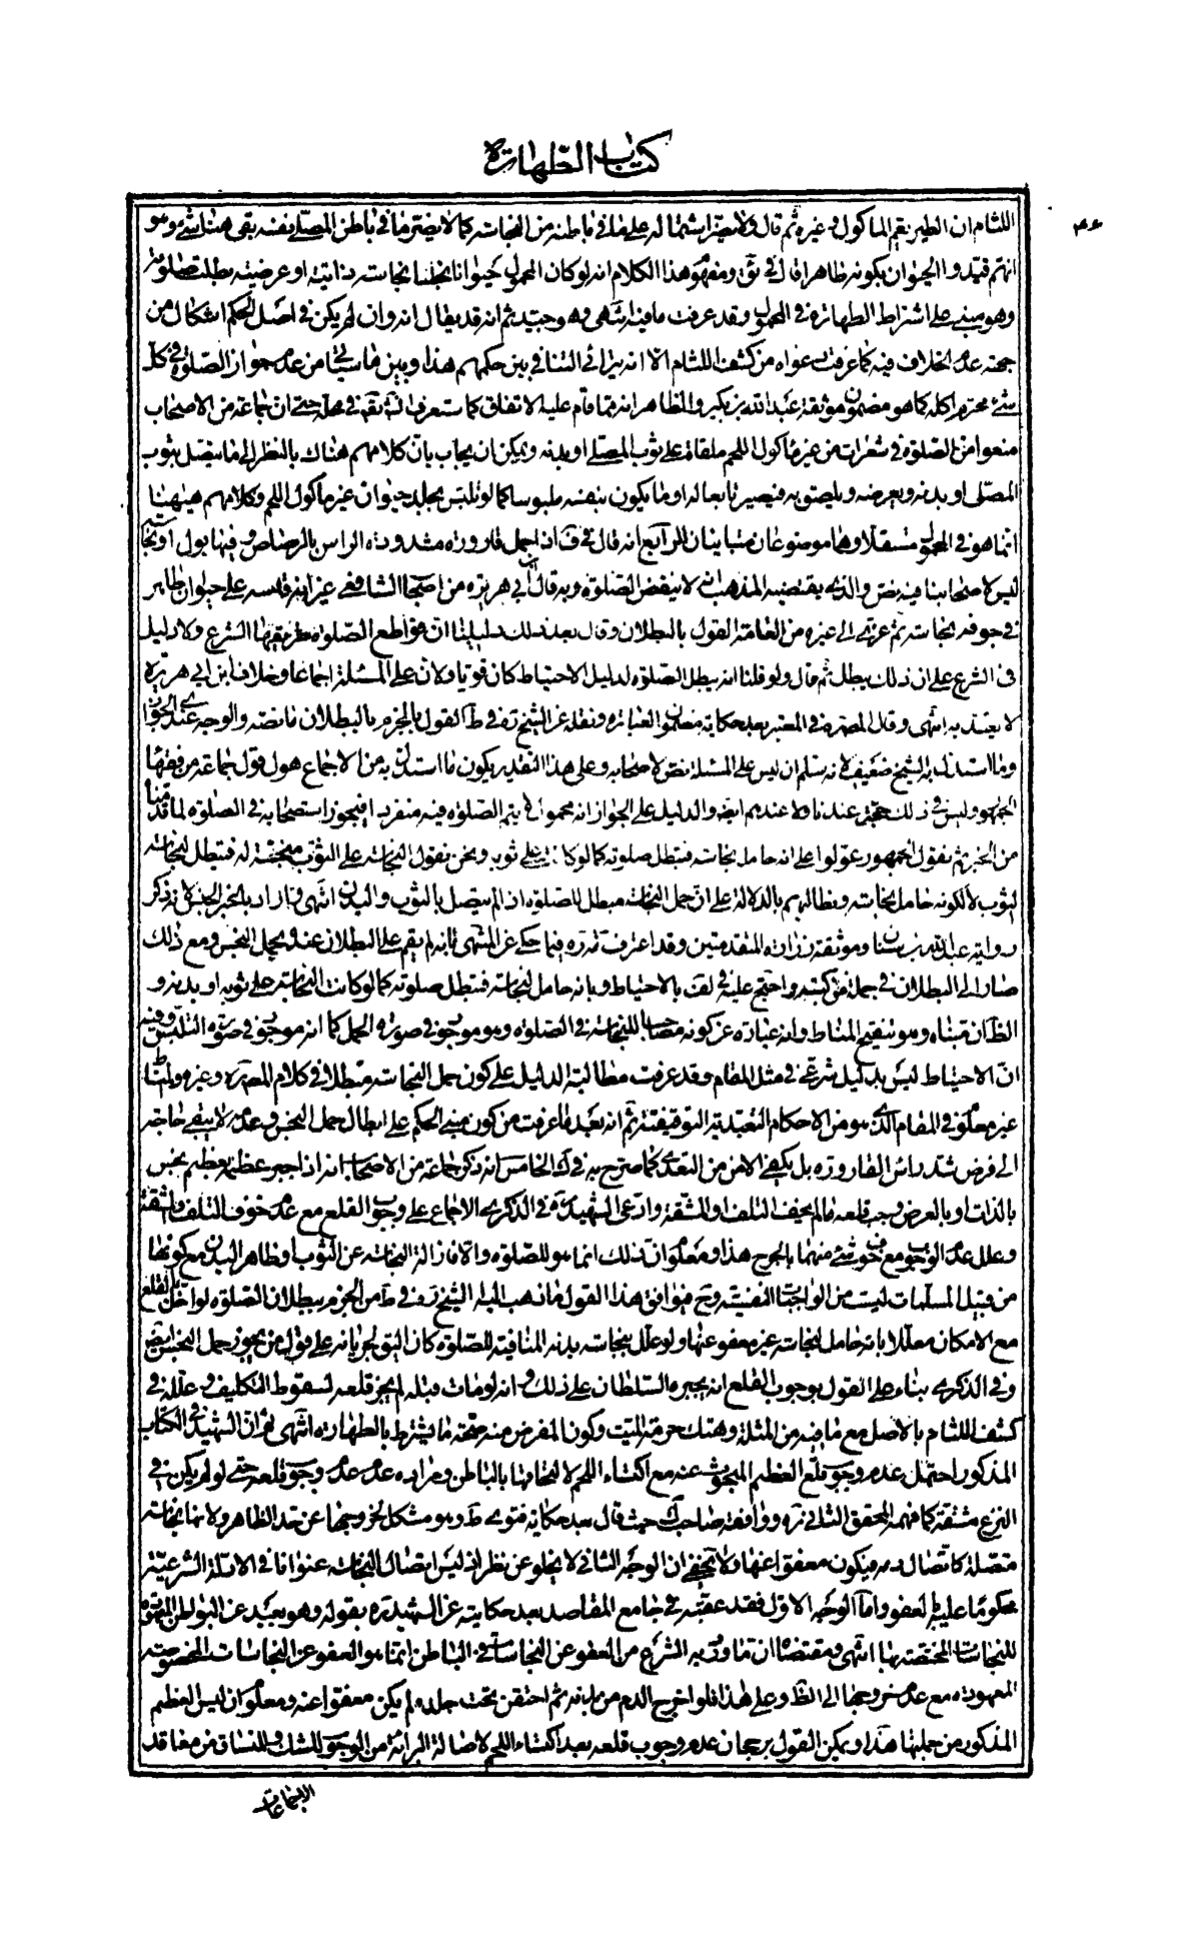 كتاب الطهارة
٤٦
اللثام ان الطير يعم الماكول وغيره ثم قال ولا يضر اشتماله على ما في باطنه من النجاسة كما لا يضر ما في باطن المصلي نفسه بقى هنا شيء وهو
انهم قيدوا الحيوان بكونه طاهرا قال في ومفهوم هذا الكلام انه لو كان المحمول حيوانا نجسا نجاسة ذاتية او عرضية بطلت صلوته
وهو مبني على اشتراط الطهارة في المحمول وقد عرفت ما فيه انتهى وهو جيد ثم انه قد يقال انه وان لم يكن في اصل الحكم اشكال من
جهة عدم الخلاف فيه كما عرفت دعواه من كشف اللثام الا انه يترائى التنافي بين حكمهم هذا وبين ما سياتي من عدم جواز الصلوة في كل
شيء محرم اكله كما هو مضمون موثقة عبد الله بن بكير والظاهر انه مما قام عليه الاتفاق كما ستعرف انشاء الله تعالى في محله حتى ان جماعة من الاصحاب
منعوا من الصلوة في شعرات من غير ماكول اللحم ملقاة على ثوب المصلي او بدنه ويمكن ان يجاب بان كلامهم هناك بالنظر الى ما يتصل بثوب
المصلى او بدنه ويعرضه ويلصق به فيصير تابعا له او ما يكون بنفسه ملبوسا كما لو تلبس بجلد حيوان غير ماكول اللحم وكلامهم هيهنا
انما هو في المحمول مستقلا وهما موضوعان متباينان الرابع انه قال في ف اذا حمل قارورة مشدودة الراس بالرصاص وفيها بول او نجاسة
ليس لاصحابنا فيه نص والذي يقتضيه المذهب انه لا ينقض الصلوة وبه قال ابن ابي هريرة من اصحاب الشافعي غير انه قاسه على حيوان طاهر
في جوفه نجاسة ثم عزى الى غيره من العامة القول بالبطلان وقال بعد ذلك دليلنا ان قواطع الصلوة طريقها الشرع ولا دليل
في الشرع على ان ذلك يبطل ثم قال ولو قلنا انه يبطل الصلوة لدليل الاحتياط كان قويا ولان على المسئلة اجماعا وخلاف ابن ابي هريرة
لا يعتد به انتهى وقال المصنف ره في المعتبر بعد حكاية مضمون العبارة ونقله عن الشيخ ره في ط القول بالجزم بالبطلان ما نصه والوجه عندي الجواز
وما استدل به الشيخ ضعيف لانه سلم ان ليس على المسئلة نص لاصحابه وعلى هذا التقدير يكون ما استدل به من الاجماع هو قول جماعة من فقهاء
الجمهور وليس في ذلك حجة عندنا ولا عندهم ايضا والدليل على الجواز انه محمول لا يتم الصلوة فيه منفردا فيجوز استصحابه في الصلوة لما قدمنا
من الخبر ثم نقول الجمهور عولوا على انه حامل نجاسة فتبطل صلوته كما لو كانت على ثوبه ونحن نقول النجاسة على الثوب منجسة له فتبطل لنجاسة
الثوب لا لكونه حامل نجاسة ونطالبهم بالدلالة على ان حمل النجاسة مبطل للصلوة اذا لم يتصل بالثوب والبدن انتهى واراد بالخبر الجنس لانه ذكر
رواية عبد الله بن سنان وموثقة زرارة المتقدمتين وقد اعترف قدره فيما حكى عن المنتهى بانه لم يقم على البطلان عند وبحمل النجس ومع ذلك
صار الى البطلان في جملة من كتبه واحتج عليه في لف بالاحتياط وبانه حامل نجاسة فتبطل صلوته كما لو كانت النجاسة على ثوبه او بدنه و
الظاهر ان مبناه وهو تنقيح المناط وانه عبارة عن كونه مصاحبا للنجاسة في الصلوة وهو موجود في صورة الحمل كما انه موجود في صورة التلبس وفيه
ان الاحتياط ليس بدليل شرعي في مثل المقام وقد عرفت مطالبة الدليل على كون حمل النجاسة مبطلا في كلام المصنف ره وغيره والمناط
غير معلوم في المقام الذي هو من الاحكام التعبدية التوقيفية ثم انه بعد ما عرفت من كون مبنى الحكم على ابطال حمل النجس وعدمه لا يبقى حاجة
الى فرض شد راس القارورة بل يكفي الامن من التعدي كما صرح به في ك الخامس انه ذكر جماعة من الاصحاب انه اذا جبر عظمه بعظم نجس
بالذات او بالعرض وجب قلعه ما لم يخف التلف او المشقة وادعى الشهيد ره في الذكرى الاجماع على وجوب القلع مع عدم خوف التلف والمشقة
وعلل عدم الوجوب مع خوف شيء منهما بالحرج هذا ومعلوم ان ذلك انما هو للصلوة والا فازالة النجاسة عن الثوب او ظاهر البدن مع كونها
من قبيل المسلمات ليست من الواجبات النفسية وح فيوافق هذا القول ما ذهب اليه الشيخ ره في ط من الجزم ببطلان الصلوة لو اخل بالقلع
مع الامكان معللا بانه حامل لنجاسة غير معفو عنها ولو علل بنجاسة بدنه المنافية للصلوة كان اليق لجريانه على قول من يجوز حمل النجس ايضا
وفي الذكرى بناء على القول بوجوب القلع انه يجبره السلطان على ذلك وانه لو مات قبله لم يجز قلعه لسقوط التكليف وعلله في
كشف اللثام بالاصل مع ما فيه من المثلة وهتك حرمة الميت وكون المفروض منه صحة ما يشترط بالطهارة انتهى ثم ان الشهيد في الكتاب
المذكور احتمل عدم وجوب قلع العظم المبحوث عنه مع اكتساء اللحم لالتحاقها بالباطن ومراده عدم وجوب قلعه حتى لو لم يكن في
النزع مشقة كما فهمه المحقق الثاني ره ووافقه صاحب ك حيث قال بعد حكاية فتوى ط وهو مشكل لخروجها عن حد الظاهر ولانها نجاسة
متصلة كاتصال دمه فيكون معفوا عنها ولا يخفى ان الوجه الثاني لا يخلو عن نظر اذ ليس اتصال النجاسة عنوانا في الادلة الشرعية
محكوما عليه بالعفو واما الوجه الاول فقد عقبه في جامع المقاصد بعد حكايته عن الشهيد ره بقوله وهو بعيد عن البواطن المعهودة
للنجاسات المختصة بها انتهى ومقتضاه ان ما ورد به الشرع من العفو عن النجاسات في الباطن انما هو العفو عن النجاسات المخصوصة
المعهودة مع عدم خروجها الى الظاهر وعلى هذا فلو اخرج الدم من بدنه ثم احتقن تحت جلده لم يكن معفوا عنه ومعلوم ان ليس العظم
المذكور من جملتها هذا ويمكن القول برجحان عدم وجوب قلعه بعد اكتساء اللحم لاصالة البرائة من الوجوب للشك والمنساق من معاقد
الاجماعات